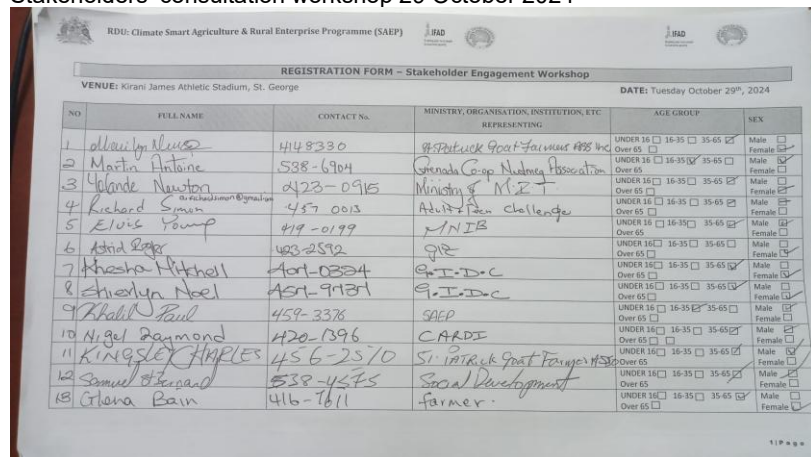 Stakeholders' consultation workshop 29 October 2024
RDU: Climate Smart Agriculture & Rural Enterprise Programme (SAEP) IFAD IFAD
REGISTRATION FORM – Stakeholder Engagement Workshop
VENUE: Kirani James Athletic Stadium, St. George DATE: Tuesday October 29th, 2024
NO FULL NAME CONTACT No. MINISTRY, ORGANISATION, INSTITUTION, ETC REPRESENTING AGE GROUP SEX
1 4148330 St Patrick Goat Farmers Ass Inc UNDER 16 ☐ 16-35 ☐ 35-65 ☑ Over 65 ☐ Male ☐ Female ☑
2 Martin Antoine 538-6904 Grenada Co-op Nutmeg Association UNDER 16 ☐ 16-35 ☑ 35-65 ☐ Over 65 ☐ Male ☑ Female ☐
3 Yolande Newton 423-0915 Ministry of M.I.T UNDER 16 ☐ 16-35 ☐ 35-65 ☑ Over 65 ☐ Male ☐ Female ☑
4 Richard Simon 457 0013 Adult & Teen Challenge UNDER 16 ☐ 16-35 ☐ 35-65 ☑ Over 65 Male ☑ Female ☐
5 Elvis Young 419-0199 MNIB UNDER 16 ☐ 16-35 ☐ 35-65 ☑ Over 65 Male ☑ Female ☐
6 Astrid 403-2592 GIZ UNDER 16 ☐ 16-35 ☐ 35-65 ☐ Over 65 ☐ Male ☐ Female ☑
7 Khesha Mitchell G.I.D.C UNDER 16 ☐ 16-35 ☐ 35-65 ☑ Over 65 ☐ Male ☐ Female ☑
8 Noel G.I.D.C UNDER 16 ☐ 16-35 ☐ 35-65 ☑ Over 65 ☐ Male ☐ Female ☑
9 Khalil Paul 459-3376 SAEP UNDER 16 ☐ 16-35 ☑ 35-65 ☐ Over 65 ☐ Male ☑ Female ☐
10 Nigel Raymond 420-1396 CARDI UNDER 16 ☐ 16-35 ☐ 35-65 ☑ Over 65 ☐ ☐ Male ☑ Female ☐
11 KINGSLEY CHARLES 456-2570 St. PATRICK Goat Farmer ASSO UNDER 16 ☐ 16-35 ☐ 35-65 ☑ Over 65 ☐ Male ☑ Female ☐
12 Samuel 538-4575 Social Development UNDER 16 ☐ 16-35 ☐ 35-65 ☑ Over 65 Male ☑ Female ☐
13 Glena Bain 416-7611 farmer. UNDER 16 ☐ 16-35 ☐ 35-65 ☑ Over 65 ☐ Male ☐ Female ☑
1 | P a g e